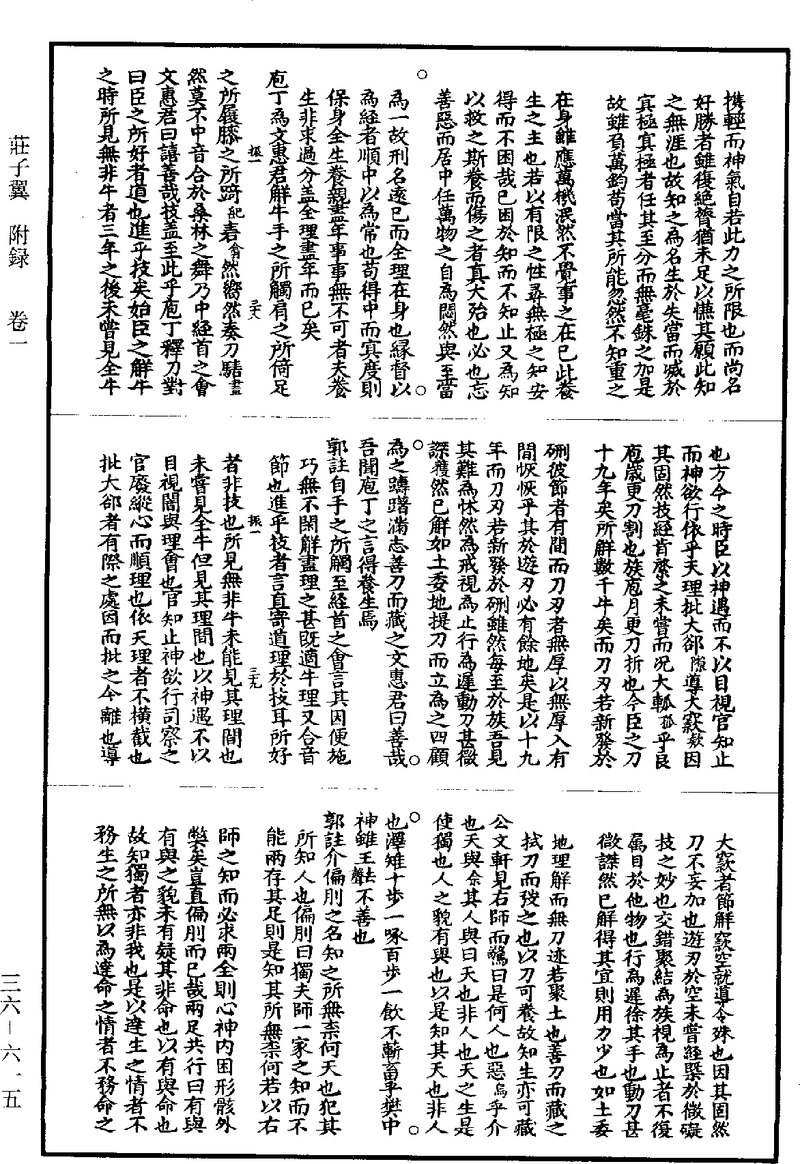 攜輕而神氣自若此力之所限也而尚名
好勝者雖復絕膂猶未足以慊其願此知
之無涯也故知之為名生於失當而滅於
冥極冥極者任其至分而無毫銖之加是
故雖負萬鈞苟當其所能忽然不知重之
在身雖應萬機泯然不覺事之在已此養
生之主也若以有限之性尋無極之知安
得而不困哉已困於知而不知止又為知
以救之斯養而傷之者真大殆也必也忘
善惡而居中任萬物之自為悶然與至當
為一故刑名遠已而全理在身也緣督以
為經者順中以為常也苟得中而冥度則
保身全生養親盡年事事無不可者夫養
生非求過分蓋全理盡年而已矣
庖丁為文惠君解牛手之所觸肩之所倚足
之所履膝之所踦紀砉翕然嚮然奏刀騞畫
然莫不中音合於桑林之舞乃中經首之會
文惠君曰譆善哉技蓋至此乎庖丁釋刀對
曰臣之所好者道也進乎技矣始臣之解牛
之時所見無非牛者三年之後未嘗見全牛
也方今之時臣以神遇而不以目視官知止
而神欲行依乎天理批大郤隙導大窾款因
其固然技經肯綮之未嘗而况大軱孤乎良
庖歲更刀割也族庖月更刀折也今臣之刀
十九年矣所解數千牛矣而刀刃若新發於
硎彼節者有間而刀刃者無厚以無厚入有
間恢恢乎其於遊刃必有餘地矣是以十九
年而刀刃若新發於硎雖然每至於族吾見
其難為怵然為戒視為止行為遲動刀甚微
謋獲然已解如土委地提刀而立為之四顧
為之躊躇滿志善刀而藏之文惠君曰善哉
吾聞庖丁之言得養生焉
郭註自手之所觸至經首之會言其因便施
巧無不閑解盡理之甚既適牛理又合音
節也進乎技者言直寄道理於技耳所好
者非技也所見無非牛未能見其理間也
未嘗見全牛但見其理間也以神遇不以
目視闇與理會也官知止神欲行司察之
官廢縱心而順理也依天理者不橫截也
批大郤者有際之處因而批之令離也導
大窾者節解窾空就導令殊也因其固然
刀不妄加也遊刃於空未嘗經槩於微礙
技之妙也交錯聚結為族視為止者不復
屬目於他物也行為遲徐其手也動刀甚
微謋然已解得其宜則用力少也如土委
地理解而無刀迹若聚土也善刀而藏之
拭刀而弢之也以刀可養故知生亦可藏
公文軒見右師而驚曰是何人也惡烏乎介
也天與余其人與曰天也非人也天之生是
使獨也人之貌有與也以是知其天也非人
也澤雉十步一啄百步一飲不蘄畜乎樊中
神雖王去聲不善也
郭註介偏刖之名知之所無柰何天也犯其
所知人也偏刖曰獨夫師一家之知而不
能兩存其足則是知其所無柰何若以右
師之知而必求兩全則心神內困形骸外
弊矣豈直偏刖而已哉兩足共行曰有與
有與之貌未有疑其非命也以有與命也
故知獨者亦非我也是以達生之情者不
務生之所無以為達命之情者不務命之
莊子翼　附録　卷一
三六－六一五